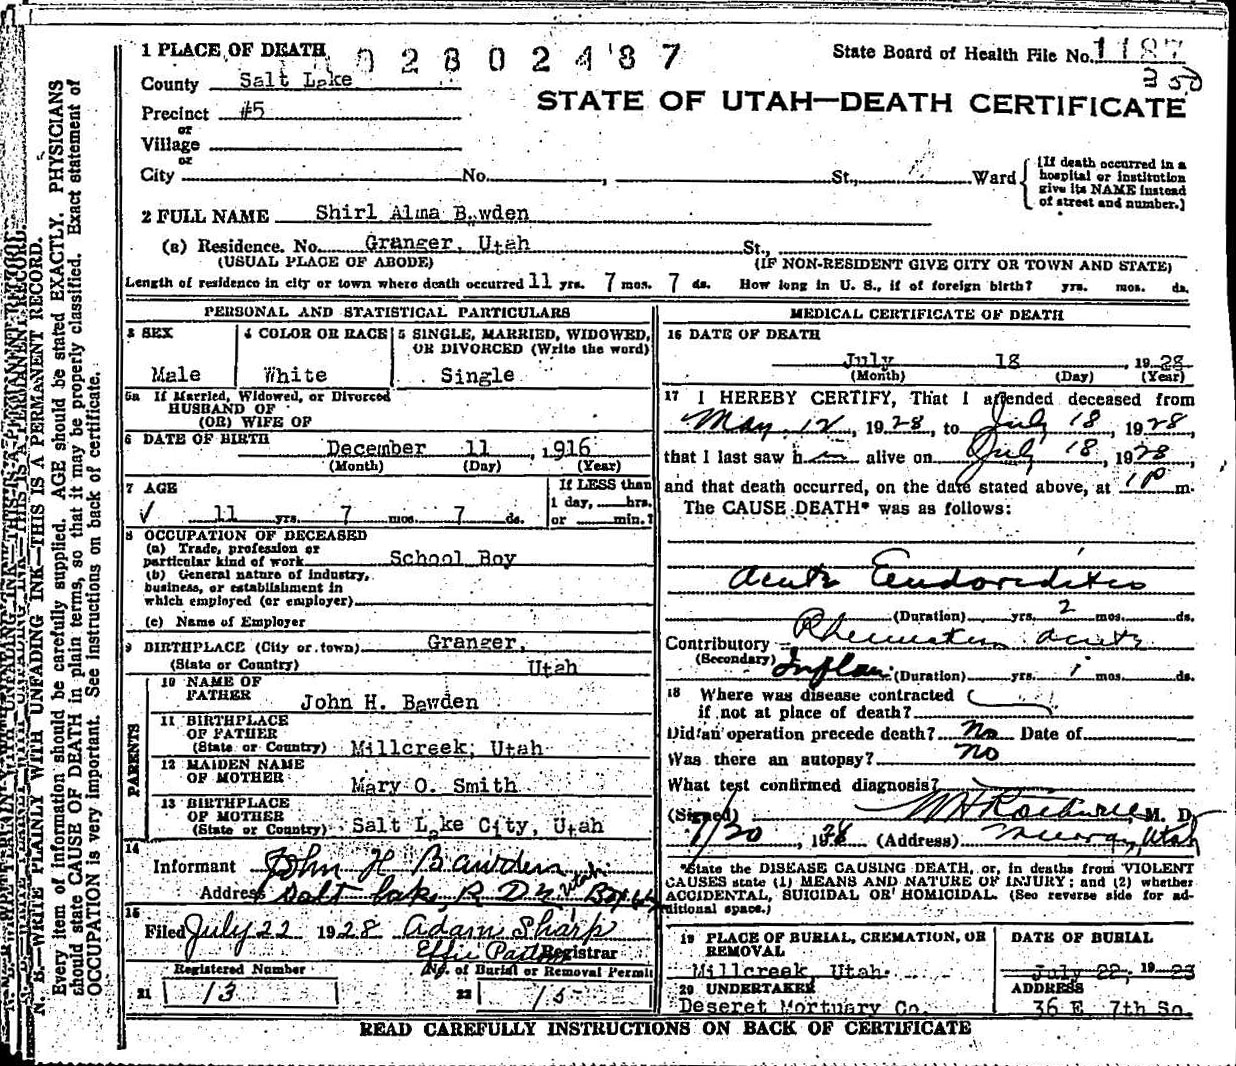 1 PLACE OF DEATH
02802487
State Board of Health File No. 1187
350
County Salt Lake
STATE OF UTAH—DEATH CERTIFICATE
Precinct #5
or
Village
or
City No. , St., Ward
{If death occurred in a
hospital or institution
give its NAME instead
of street and number.}
2 FULL NAME Shirl Alma Bawden
(a) Residence. No. Granger, Utah St.,
(USUAL PLACE OF ABODE) (IF NON-RESIDENT GIVE CITY OR TOWN AND STATE)
Length of residence in city or town where death occurred 11 yrs. 7 mos. 7 ds. How long in U. S., if of foreign birth? yrs. mos. ds.
PERSONAL AND STATISTICAL PARTICULARS
3 SEX
Male
4 COLOR OR RACE
White
5 SINGLE, MARRIED, WIDOWED,
OR DIVORCED (Write the word)
Single
5a If Married, Widowed, or Divorced
HUSBAND OF
(OR) WIFE OF
6 DATE OF BIRTH
December 11, 1916
(Month) (Day) (Year)
7 AGE
✓ 11 yrs. 7 mos. 7 ds.
If LESS than
1 day, hrs.
or min.?
8 OCCUPATION OF DECEASED
(a) Trade, profession or
particular kind of work School Boy
(b) General nature of industry,
business, or establishment in
which employed (or employer)
(c) Name of Employer
9 BIRTHPLACE (City or town) Granger,
(State or Country) Utah
PARENTS
10 NAME OF
FATHER John H. Bawden
11 BIRTHPLACE
OF FATHER
(State or Country) Millcreek, Utah
12 MAIDEN NAME
OF MOTHER Mary O. Smith
13 BIRTHPLACE
OF MOTHER
(State or Country) Salt Lake City, Utah
14
Informant John H Bawden
Address Salt Lake, R. D. Utah Box
15
Filed July 22 1928 Adam Sharp
Effie Registrar
Registered Number
21 13
No. of Burial or Removal Permit
22 15
MEDICAL CERTIFICATE OF DEATH
16 DATE OF DEATH
July 18 , 1928
(Month) (Day) (Year)
17 I HEREBY CERTIFY, That I attended deceased from
May 12, 1928, to July 18, 1928,
that I last saw h im alive on July 18, 1928,
and that death occurred, on the date stated above, at 1 P m.
The CAUSE DEATH* was as follows:
Acute Endocarditis
(Duration) yrs. 2 mos. ds.
Contributory Rheumatism acute
(Secondary) Inflam (Duration) yrs. mos. ds.
18 Where was disease contracted
if not at place of death?
Did an operation precede death? No Date of
Was there an autopsy? No
What test confirmed diagnosis?
(Signed) M. D.
7/20, 1928 (Address) Murray, Utah
*State the DISEASE CAUSING DEATH, or, in deaths from VIOLENT
CAUSES state (1) MEANS AND NATURE OF INJURY; and (2) whether
ACCIDENTAL, SUICIDAL OR HOMICIDAL. (See reverse side for ad-
ditional space.)
19 PLACE OF BURIAL, CREMATION, OR
REMOVAL
Millcreek, Utah.
DATE OF BURIAL
July 22, 1928
20 UNDERTAKER
Deseret Mortuary Co.
ADDRESS
36 E 7th So.
READ CAREFULLY INSTRUCTIONS ON BACK OF CERTIFICATE
N. B.—WRITE PLAINLY WITH UNFADING INK—THIS IS A PERMANENT RECORD.
Every item of information should be carefully supplied. AGE should be stated EXACTLY. PHYSICIANS
should state CAUSE OF DEATH in plain terms, so that it may be properly classified. Exact statement of
OCCUPATION is very important. See instructions on back of certificate.